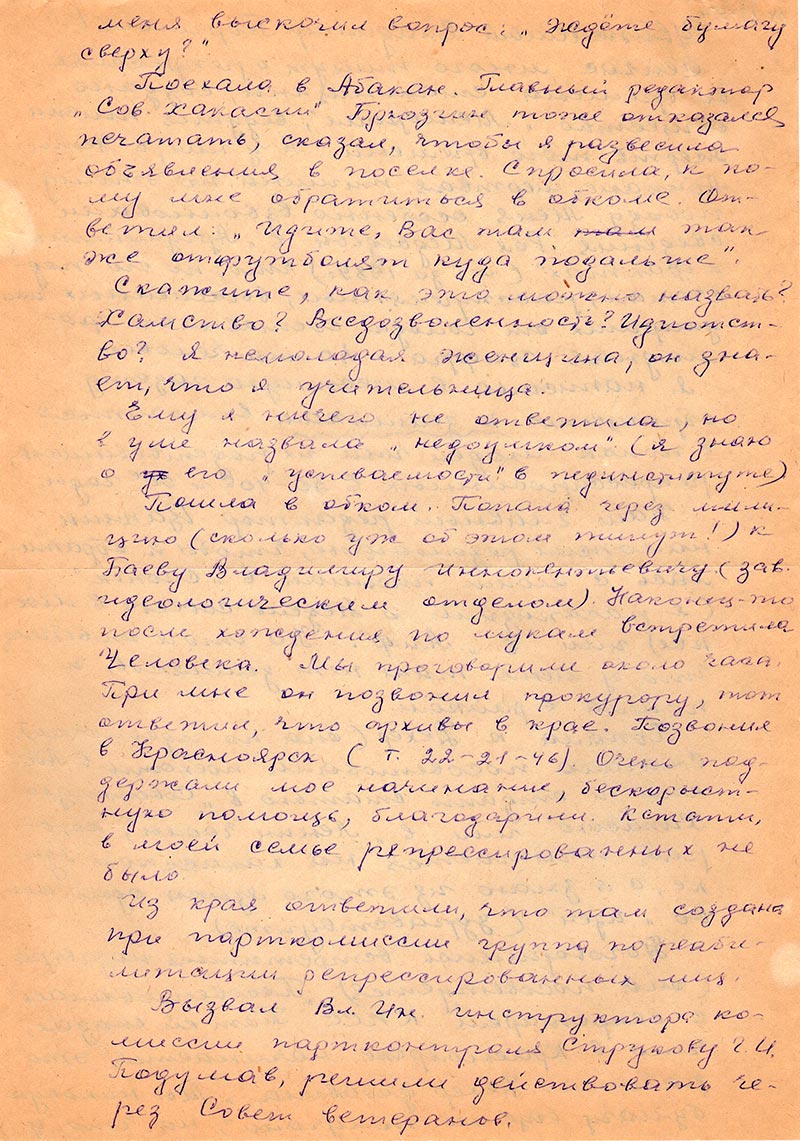 меня выскочил вопрос: „Ждёте бумагу
сверху?"
Поехала в Абакан. Главный редактор
„Сов. Хакасии" Брюзгин тоже отказался
печатать, сказал, чтобы я развесила
объявления в поселке. Спросила, к ко-
му мне обратиться в обкоме. От-
ветил: „Идите, Вас там там так
же отфутболят куда подальше".
Скажите, как это можно назвать?
Хамство? Вседозволенность? Идиотст-
во? Я немолодая женщина, он зна-
ет, что я учительница.
Ему я ничего не ответила, но
в уме назвала „недоумком" (я знаю
о его „успеваемости" в пединституте)
Пошла в обком. Попала через мили-
цию (сколько уж об этом пишут!) к
Баеву Владимиру Иннокентьевичу (зав.
идеологическим отделом). Наконец-то
после хождения по мукам встретила
Человека. Мы проговорили около часа.
При мне он позвонил прокурору, тот
ответил, что архивы в крае. Позвонил
в Красноярск (т. 22-21-46). Очень под-
держали мое начинание, бескорыст-
ную помощь, благодарили. Кстати,
в моей семье репрессированных не
было.
Из края ответили, что там создана
при парткомиссии группа по реаби-
литации репрессированных лиц.
Вызвал Вл. Ин. инструктора ко-
миссии партконтроля Струкову Г.И.
Подумав, решили действовать че-
рез Совет ветеранов.